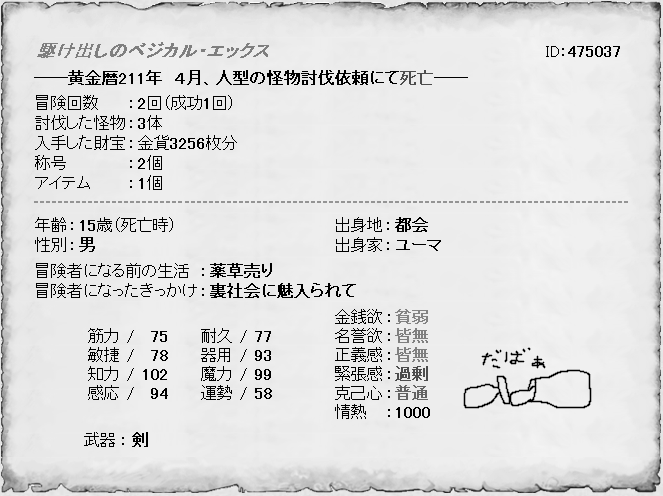 駆け出しのベジカル・エックス
ID：475037
――黄金暦211年　4月、人型の怪物討伐依頼にて死亡――
冒険回数　：2回(成功1回)
討伐した怪物：3体
入手した財宝：金貨3256枚分
称号　：2個
アイテム　：1個
年齢：15歳(死亡時)　出身地：都会
性別：男　出身家：ユーマ
冒険者になる前の生活　：薬草売り
冒険者になったきっかけ：裏社会に魅入られて
金銭欲：貧弱
筋力 / 75　耐久 / 77　名誉欲：皆無
敏捷 / 78　器用 / 93　正義感：皆無
知力 / 102　魔力 / 99　緊張感：過剰
感応 / 94　運勢 / 58　克己心：普通
情熱　：1000
だばぁ
武器：剣